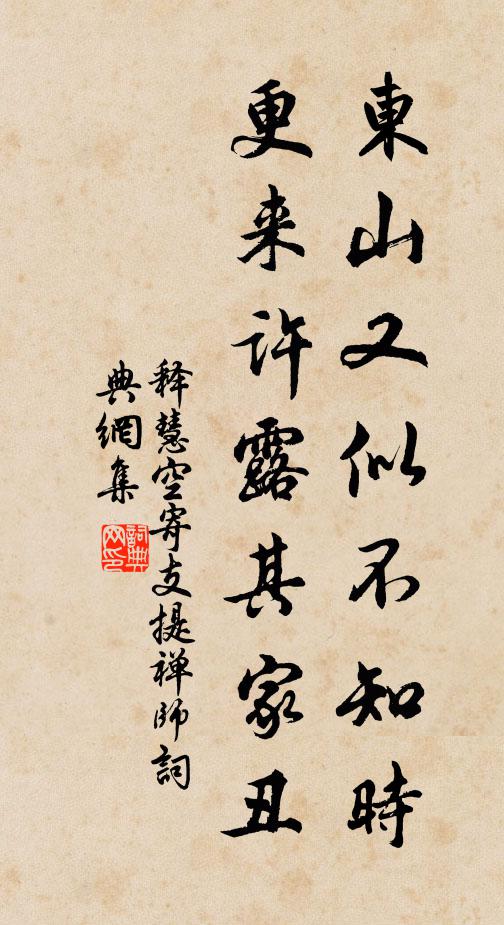 東山又似不知時
更来許露其家丑
释慧空寄支提禅師詞
典網集
詞典網印